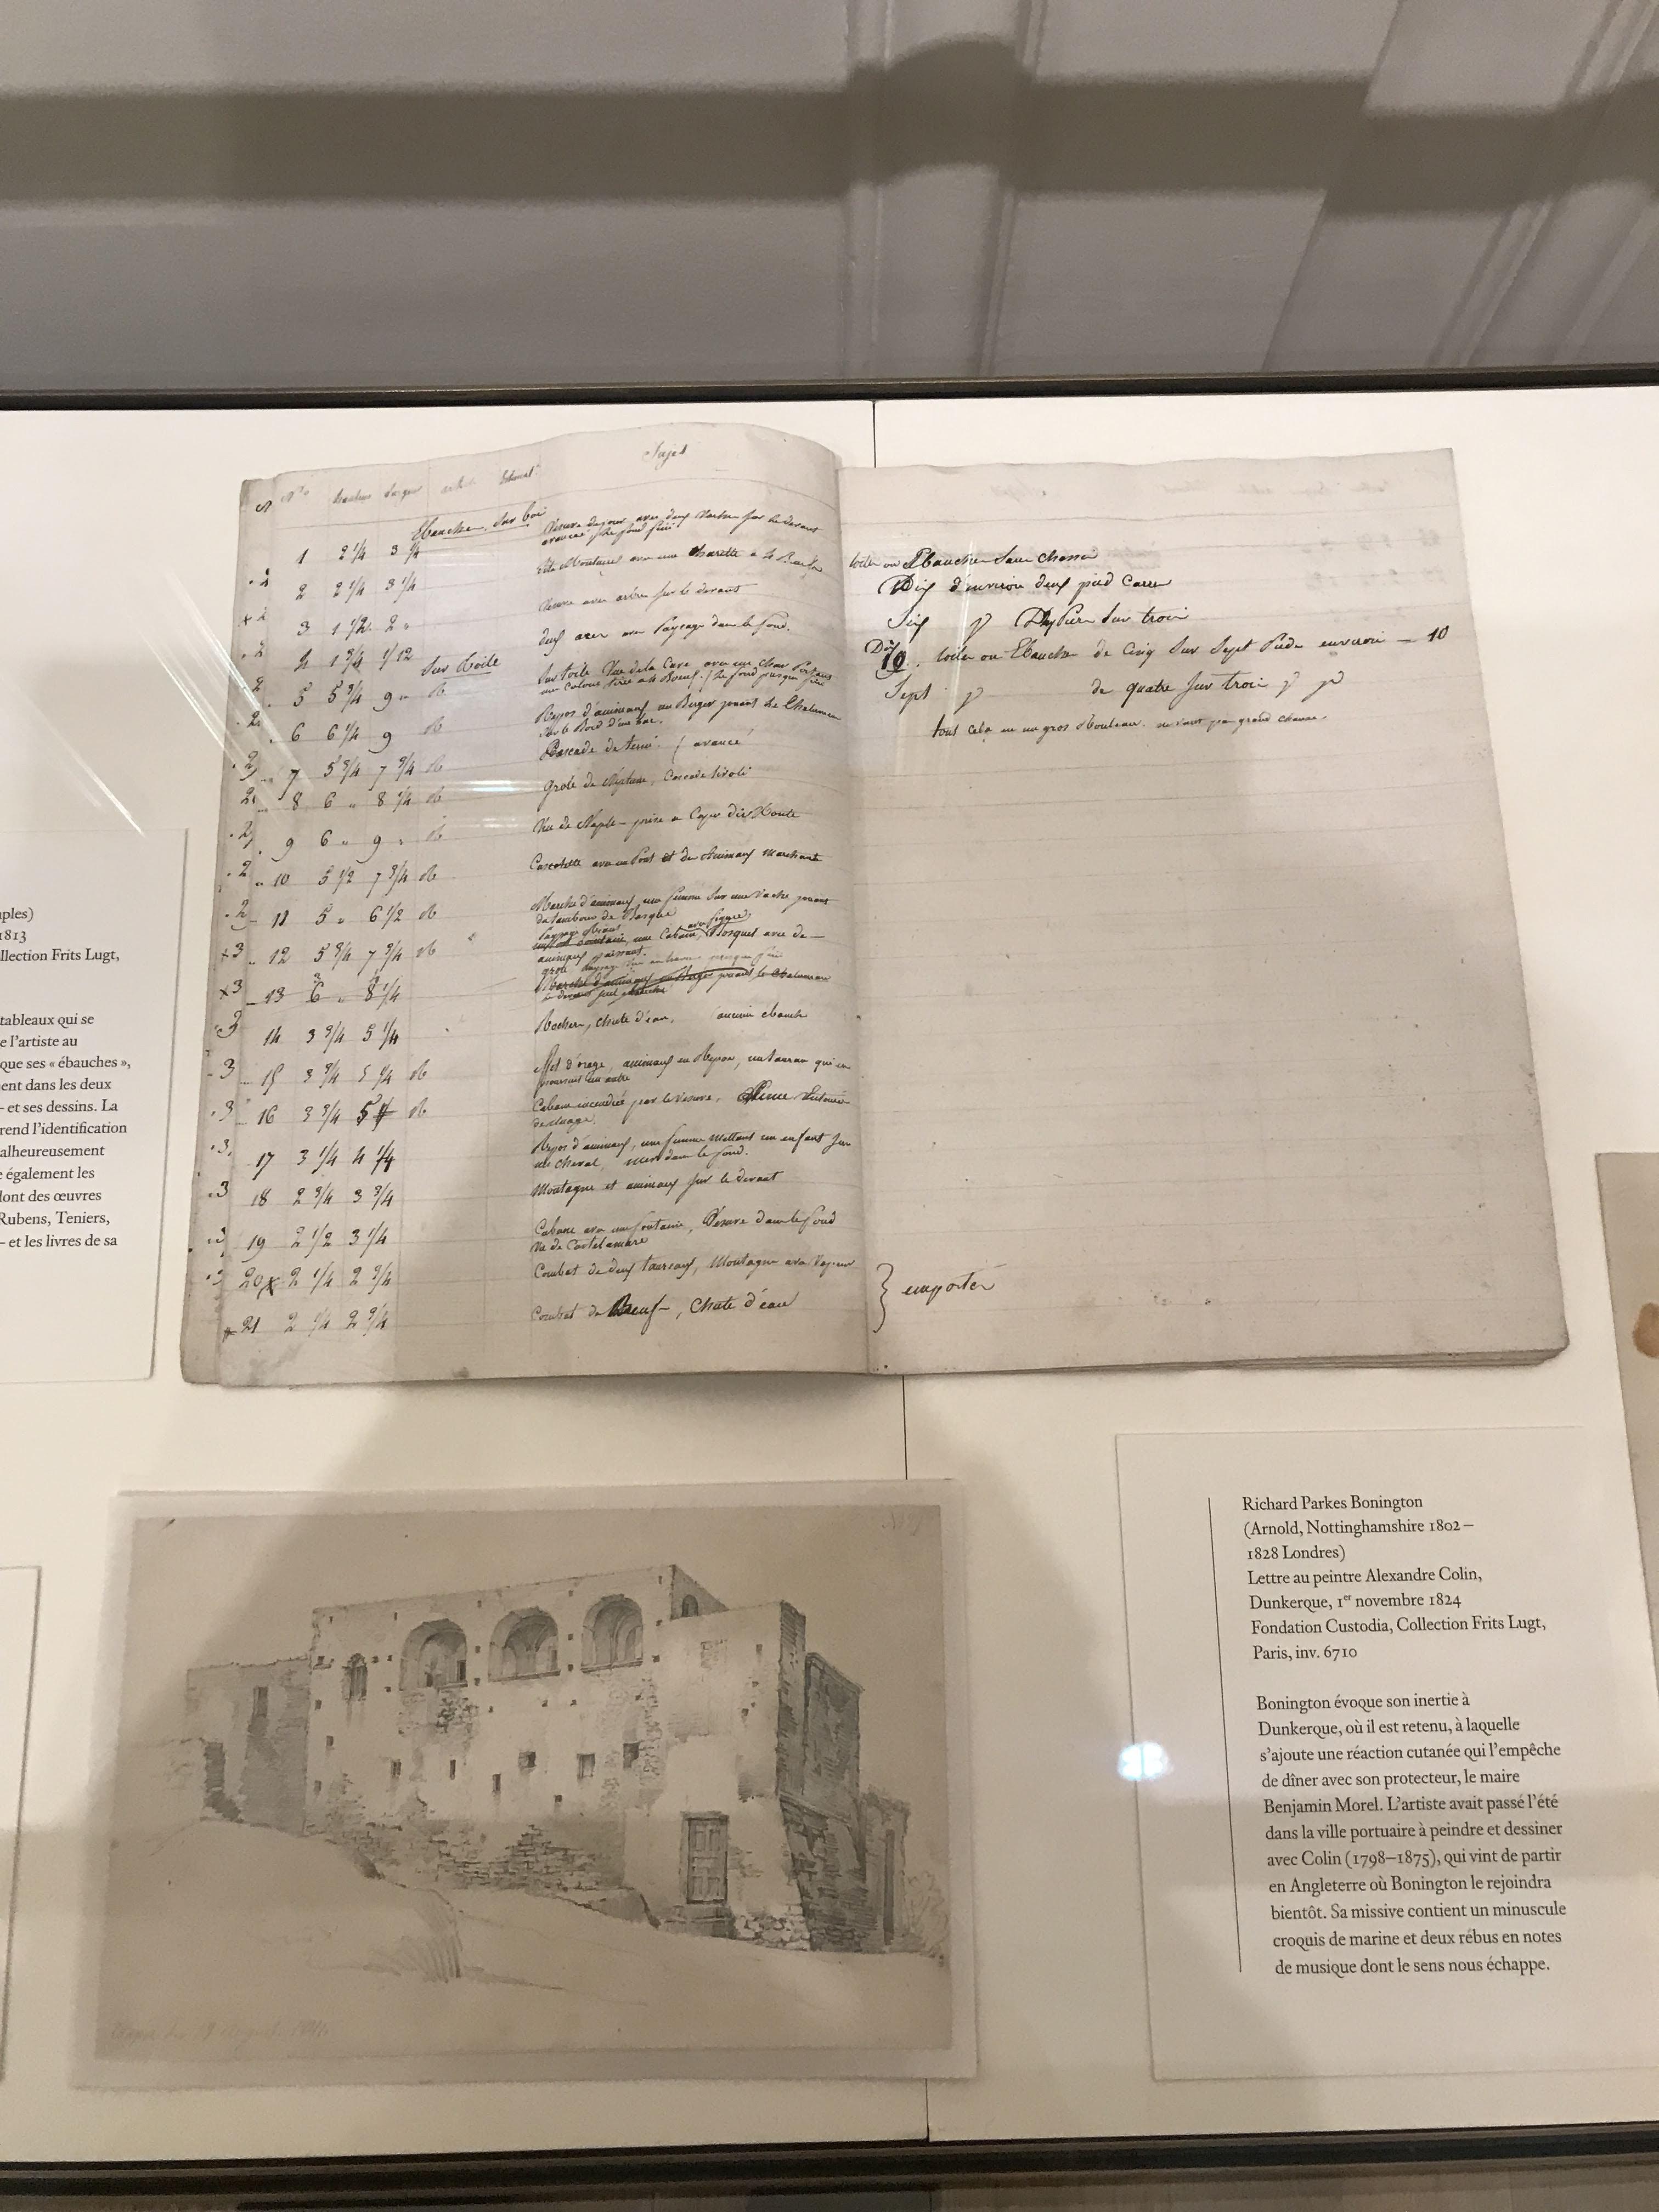 ples)
1813
llection Frits Lugt,
tableaux qui se
e l'artiste au
que ses « ébauches »,
ent dans les deux
– et ses dessins. La
rend l'identification
alheureusement
e également les
dont des œuvres
Rubens, Teniers,
– et les livres de sa
Sujet
N° hauteur largeur
Ebauche sur boi
1 2 1/4 3 1/4
2 2 1/4 3 1/4
Vesuve avec arbre sur le devant
3 1 1/2 2 "
deux avec un Paysage dans le fond.
4 1 3/4 1/12
Sur Toile
5 5 3/4 9 "
Sur toile Vue de la Cave avec un char Portant
une Colone Tirée a 4 Boeuf. / Le fond presque finie
6 6 1/4 9
Repos d'animaux un Berger jouant le Chalumeau
sur le Bord d'un lac.
7 5 3/4 7 3/4
Cascade de terni. ( avancé
8 6 " 8 1/4
Grote de Neptune, Cascade tivoli
9 6 " 9 "
Vue de Naple – prise a Capo di Monte
10 5 1/2 7 3/4
Cascatelle avec un Pont et des Animaux Marchants
11 5 " 6 1/2
Marche d'animaux une femme sur une Vache jouant
du tambour de Basque
12 5 3/4 7 3/4
une Cabane, Bosquet avec de –
animaux paissant.
13 6 " 8 1/4
14 3 3/4 5 1/4
Rocher, chute d'eau, aucune ebauche
15 3 3/4 5 1/4
effet d'orage, animaux en Repos, un taureau qui en
poursuit un autre
16 3 3/4 5
Cabane incendiée par le Vesuve,
17 3 1/4 4 1/4
Repos d'animaux, une femme mettant un enfant sur
un cheval, mer dans le fond.
18 2 3/4 3 3/4
Montagne et animaux sur le devant
19 2 1/2 3 1/4
Cabane avec une fontaine, Vesuve dans le fond
Vue de Castelamare
20 2 1/4 2 3/4
Combat de deux taureaux, Montagne avec Vapeur
21 2 1/4 2 3/4
Combat de Boeuf –, Chute d'eau
toiles ou Ebauches Sans Chassis
Dix d'environ deux pied Carre
Six Sur trois
Dix
10. toiles ou Ebauches de Cinq Sur Sept Pieds environ – 10
Sept de quatre Sur trois
tout cela en un gros Rouleau. ne vaut pas grand chause.
} emporter
Richard Parkes Bonington
(Arnold, Nottinghamshire 1802 –
1828 Londres)
Lettre au peintre Alexandre Colin,
Dunkerque, 1er novembre 1824
Fondation Custodia, Collection Frits Lugt,
Paris, inv. 6710
Bonington évoque son inertie à
Dunkerque, où il est retenu, à laquelle
s'ajoute une réaction cutanée qui l'empêche
de dîner avec son protecteur, le maire
Benjamin Morel. L'artiste avait passé l'été
dans la ville portuaire à peindre et dessiner
avec Colin (1798–1875), qui vint de partir
en Angleterre où Bonington le rejoindra
bientôt. Sa missive contient un minuscule
croquis de marine et deux rébus en notes
de musique dont le sens nous échappe.